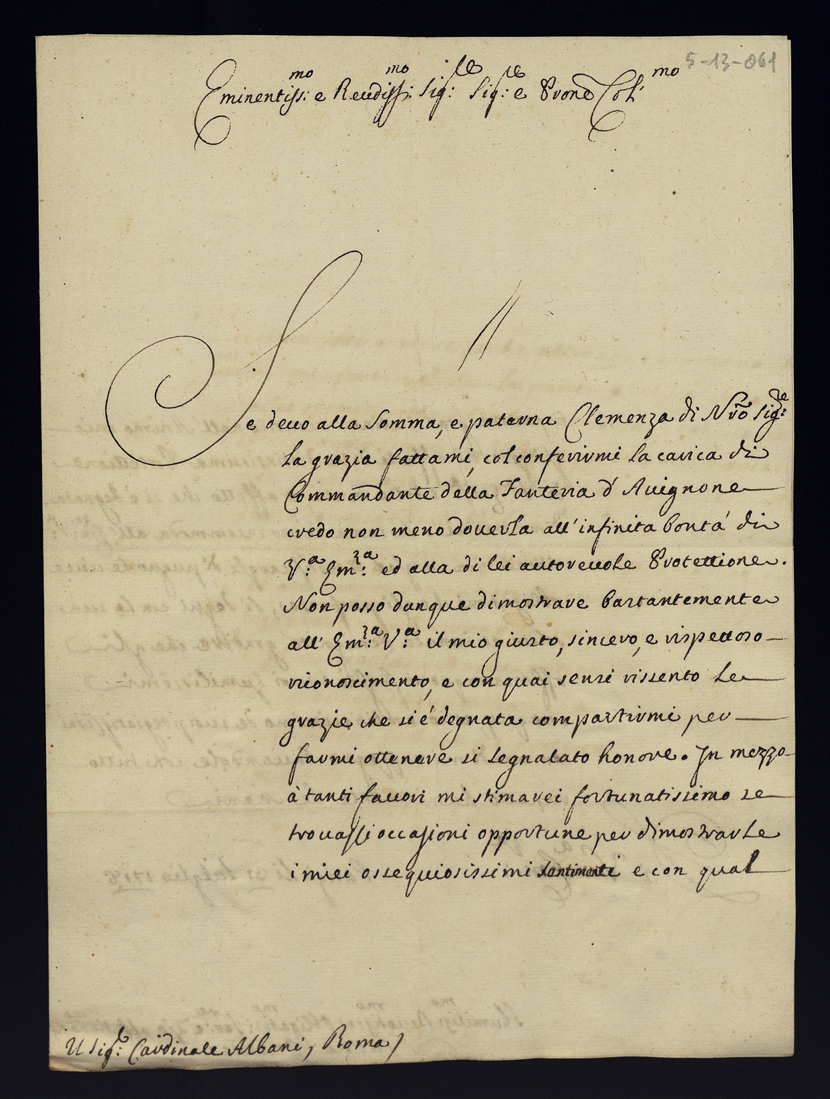 5-13-061
Eminentiss:mo e Reudiss:mo Sig:re Sig:re e Prone Col:mo
Se deuo alla Somma, e paterna Clemenza di Nro Sig:re
la grazia fattami, col conferirmi la carica di
Commandante della Fanteria d'Auignone
credo non meno douerla all'infinita bontá di
V:a Em:za ed alla di lei autoreuole Protettione.
Non posso dunque dimostrare bastantemente
all'Em:za V:a il mio giusto, sincero, e rispettoso
riconoscimento, e con quai sensi rissento le
grazie che si é degnata compartirmi per
farmi ottenere si segnalato honore. In mezzo
à tanti fauori mi stimarei fortunatissimo se
trouassi occasioni opportune per dimostrarle
i miei ossequiosissimi santimenti e con qual
Il Sig:r Cardinale Albani, Roma)